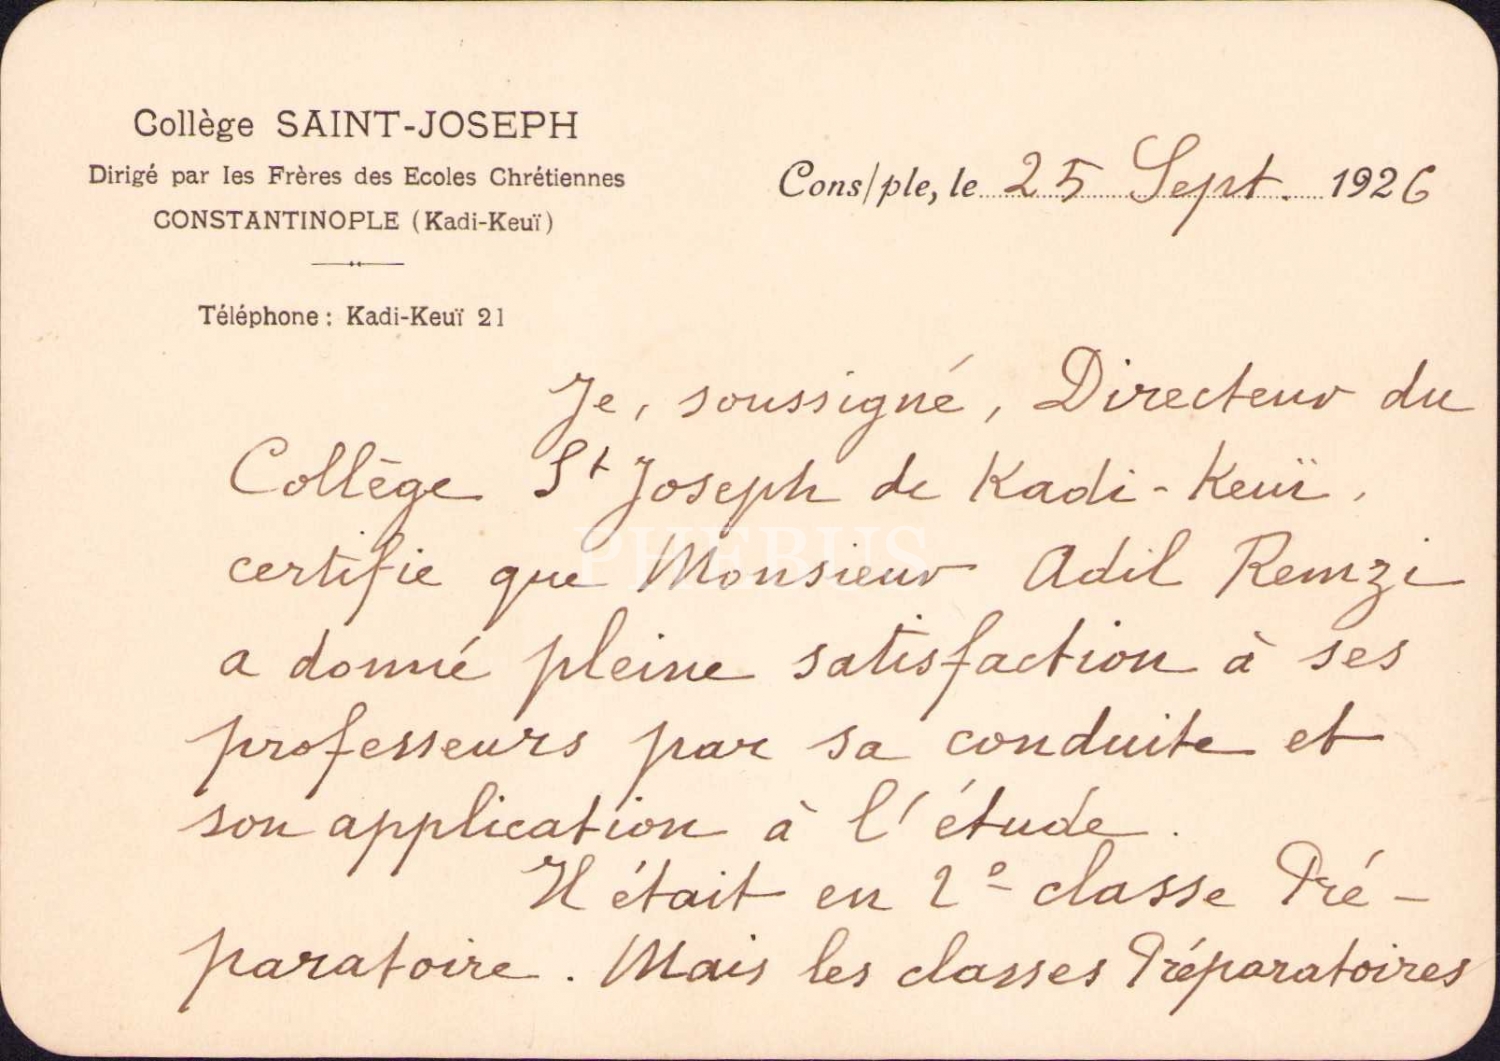 Collège SAINT-JOSEPH
Dirigé par les Frères des Ecoles Chrétiennes
CONSTANTINOPLE (Kadi-Keuï)
Téléphone : Kadi-Keuï 21
Cons/ple, le 25 Sept. 1926
Je, soussigné, Directeur du
Collège St Joseph de Kadi-Keuï,
certifie que Monsieur Adil Remzi
a donné pleine satisfaction à ses
professeurs par sa conduite et
son application à l'étude.
Il était en 2e classe Pré-
paratoire. Mais les classes Préparatoires
PHEBUS